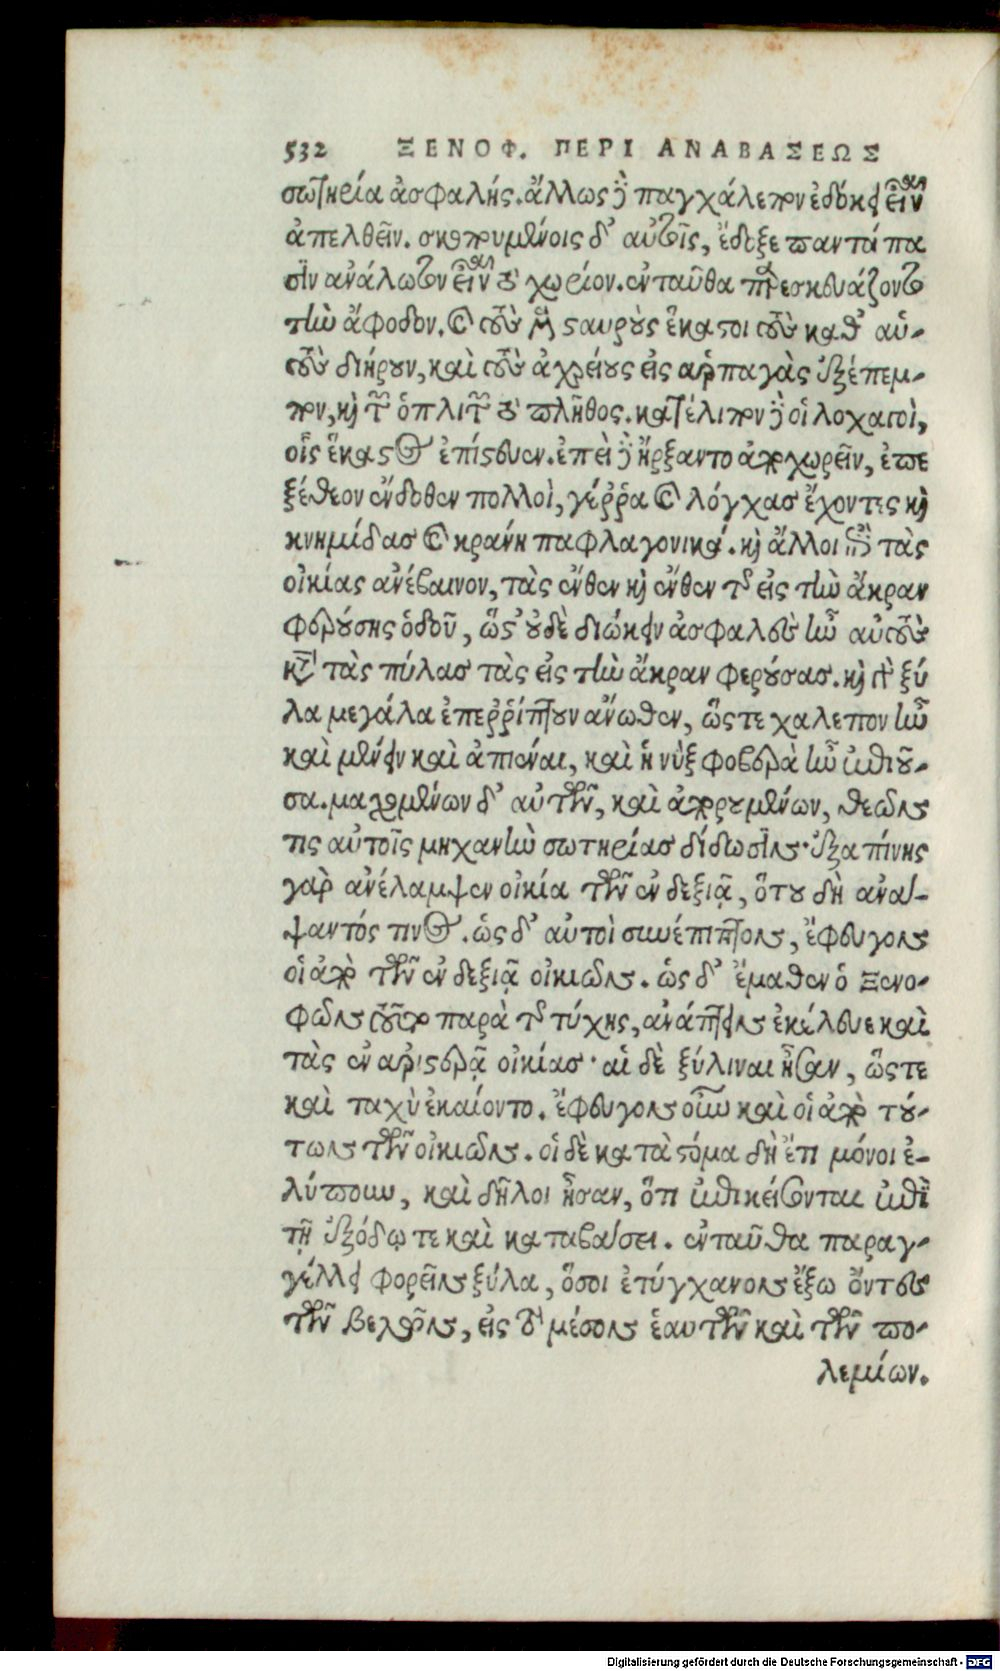 532 ΞΕΝΟΦ. ΠΕΡΙ ΑΝΑΒΑΣΕΩΣ
σωτηρία ἀσφαλής. ἄλλως δὲ παγχάλεπον ἐδόκει εἶναι
ἀπελθεῖν. σκοπουμένοις δ' αὐτοῖς, ἔδοξε παντάπα
σιν ἀνάλωτον εἶναι τὸ χωρίον. ἐνταῦθα παρεσκευάζοντο
τὴν ἄφοδον. καὶ τοὺς μὲν σταυροὺς ἕκαστοι τοὺς καθ' αὑ-
τοὺς διῄρουν, καὶ τοὺς ἀχρείους εἰς ἁρπαγὰς ἐξέπεμ-
πον, καὶ τῶν ὁπλιτῶν τὸ πλῆθος. κατέλιπον δὲ οἱ λοχαγοὶ,
οἷς ἕκαστος ἐπίστευεν. ἐπεὶ δὲ ἤρξαντο ἀποχωρεῖν, ἐπε
ξέθεον ἔνδοθεν πολλοὶ, γέῤῥα καὶ λόγχας ἔχοντες καὶ
κνημίδας καὶ κράνη παφλαγονικά. καὶ ἄλλοι ἐπὶ τὰς
οἰκίας ἀνέβαινον, τὰς ἔνθεν καὶ ἔνθεν τῆς εἰς τὴν ἄκραν
φερούσης ὁδοῦ, ὥστ' οὐδὲ διώκειν ἀσφαλὲς ἦν αὐτοὺς
κατὰ τὰς πύλας τὰς εἰς τὴν ἄκραν φερούσας. καὶ γὰρ ξύ
λα μεγάλα ἐπεῤῥίπτουν ἄνωθεν, ὥστε χαλεπὸν ἦν
καὶ μένειν καὶ ἀπιέναι, καὶ ἡ νὺξ φοβερὰ ἦν ἐπιοῦ-
σα. μαχομένων δ' αὐτῶν, καὶ ἀπορουμένων, θεῶν
τις αὐτοῖς μηχανὴν σωτηρίας δίδωσιν· ἐξαπίνης
γὰρ ἀνέλαμψεν οἰκία τῶν ἐν δεξιᾷ, ὅτου δὴ ἀνά-
ψαντός τινος. ὡς δ' αὐτοὶ συνέπιπτον, ἔφευγον
οἱ ἀπὸ τῶν ἐν δεξιᾷ οἰκιῶν. ὡς δ' ἔμαθεν ὁ Ξενο-
φῶν τοῦτο παρὰ τῆς τύχης, ἀνάπτειν ἐκέλευε καὶ
τὰς ἐν ἀριστερᾷ οἰκίας· αἱ δὲ ξύλιναι ἦσαν, ὥστε
καὶ ταχὺ ἐκαίοντο. ἔφευγον οὖν καὶ οἱ ἀπὸ τού-
των τῶν οἰκιῶν. οἱ δὲ κατὰ στόμα δὴ ἔτι μόνοι ἐ-
λύπουν, καὶ δῆλοι ἦσαν, ὅτι ἐπικείσονται ἐπὶ
τῇ ἐξόδῳ τε καὶ καταβάσει. ἐνταῦθα παραγ-
γέλλει φορεῖν ξύλα, ὅσοι ἐτύγχανον ἔξω ὄντες
τῶν βελῶν, εἰς τὸ μέσον ἑαυτῶν καὶ τῶν πο-
λεμίων.
Digitalisierung gefördert durch die Deutsche Forschungsgemeinschaft - DFG